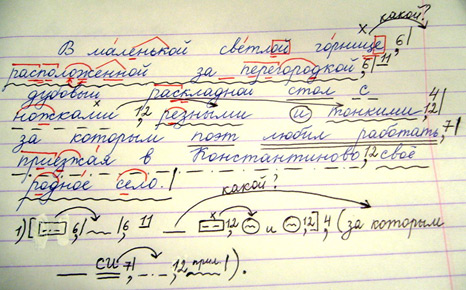 какой?
В маленькой светлой горнице, 6|
расположенной за перегородкой, 6| 11
дубовый раскладной стол с 4
ножками, 12 резными и тонкими, 12|
за которым поэт любил работать, 7|
приезжая в Константиново, 12 своё
родное село.|
какой?
1) [ 6| |, 6 11 12, и , 12], 4, (за которым
СИ 7|, 12 прил.|).